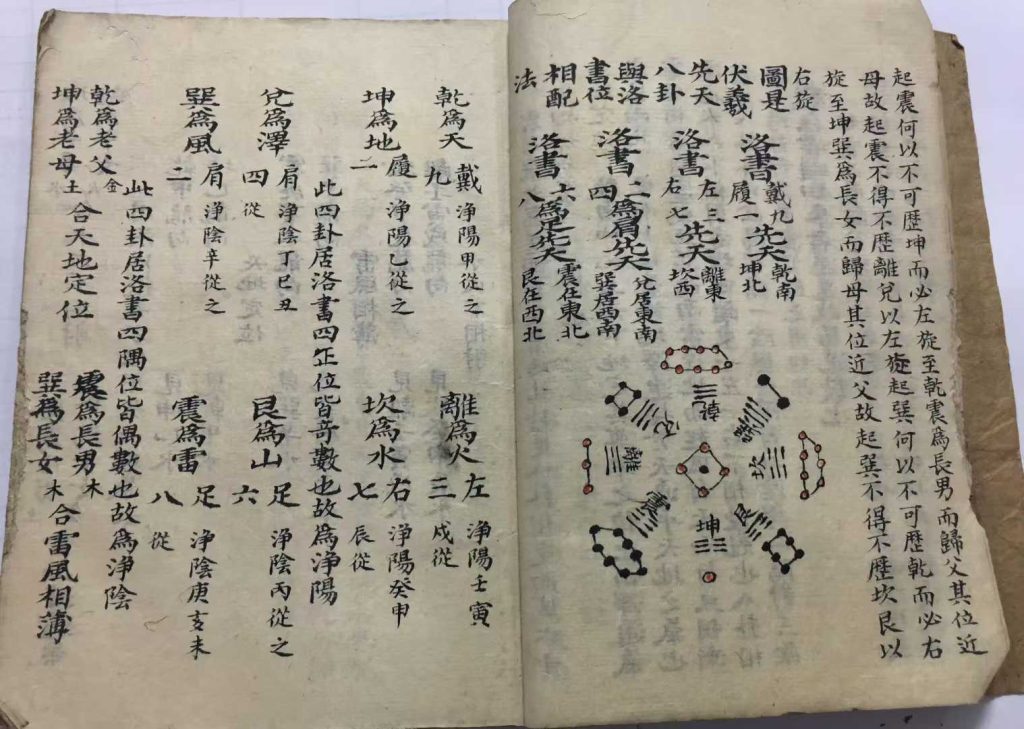 起震何以不可歷坤而必左旋至乾震為長男而歸父其位近
母故起震不得不歷離兌以左旋起巽何以不可歷乾而必右
旋至坤巽為長女而歸母其位近父故起巽不得不歷坎艮以
右旋
圖是
伏羲
先天
八卦
與洛
書位
相配
法
洛書戴九履一先天乾南坤北
洛書左三右七先天離東坎西
洛書二四為肩先天兌居東南巽居西南
洛書六八為足先天震在東北艮在西北
乾
兌
巽
離
坎
震
艮
坤
乾為天九戴淨陽甲從之
離為火三左淨陽壬寅戌從
坤為地二履淨陽乙從之
坎為水七右淨陽癸申辰從
此四卦居洛書四正位皆奇數也故為淨陽
兌為澤四肩淨陰丁巳丑從
艮為山六足淨陰丙從之
巽為風二肩淨陰辛從之
震為雷八足淨陰庚亥未從
此四卦居洛書四隅位皆偶數也故為淨陰
乾為老父金
坤為老母土
合天地定位
震為長男木
巽為長女木
合雷風相薄